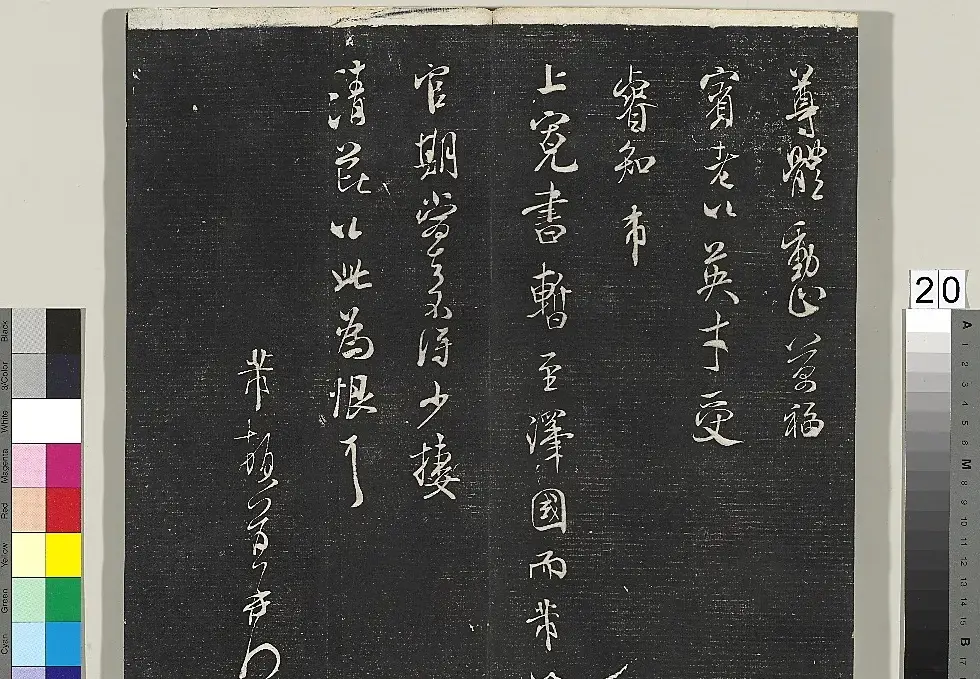 尊體動止萬福
賓老以英才更
睿知 芾
上寬書暫至澤國而芾
官期勞
不得少摟
清 以此為恨
芾頓首
20
Black
3/Color
White
Magenta
Red
Yellow
Green
Cyan
A
1
2
3
4
5
6
M
8
9
10
11
12
13
14
15
B
17